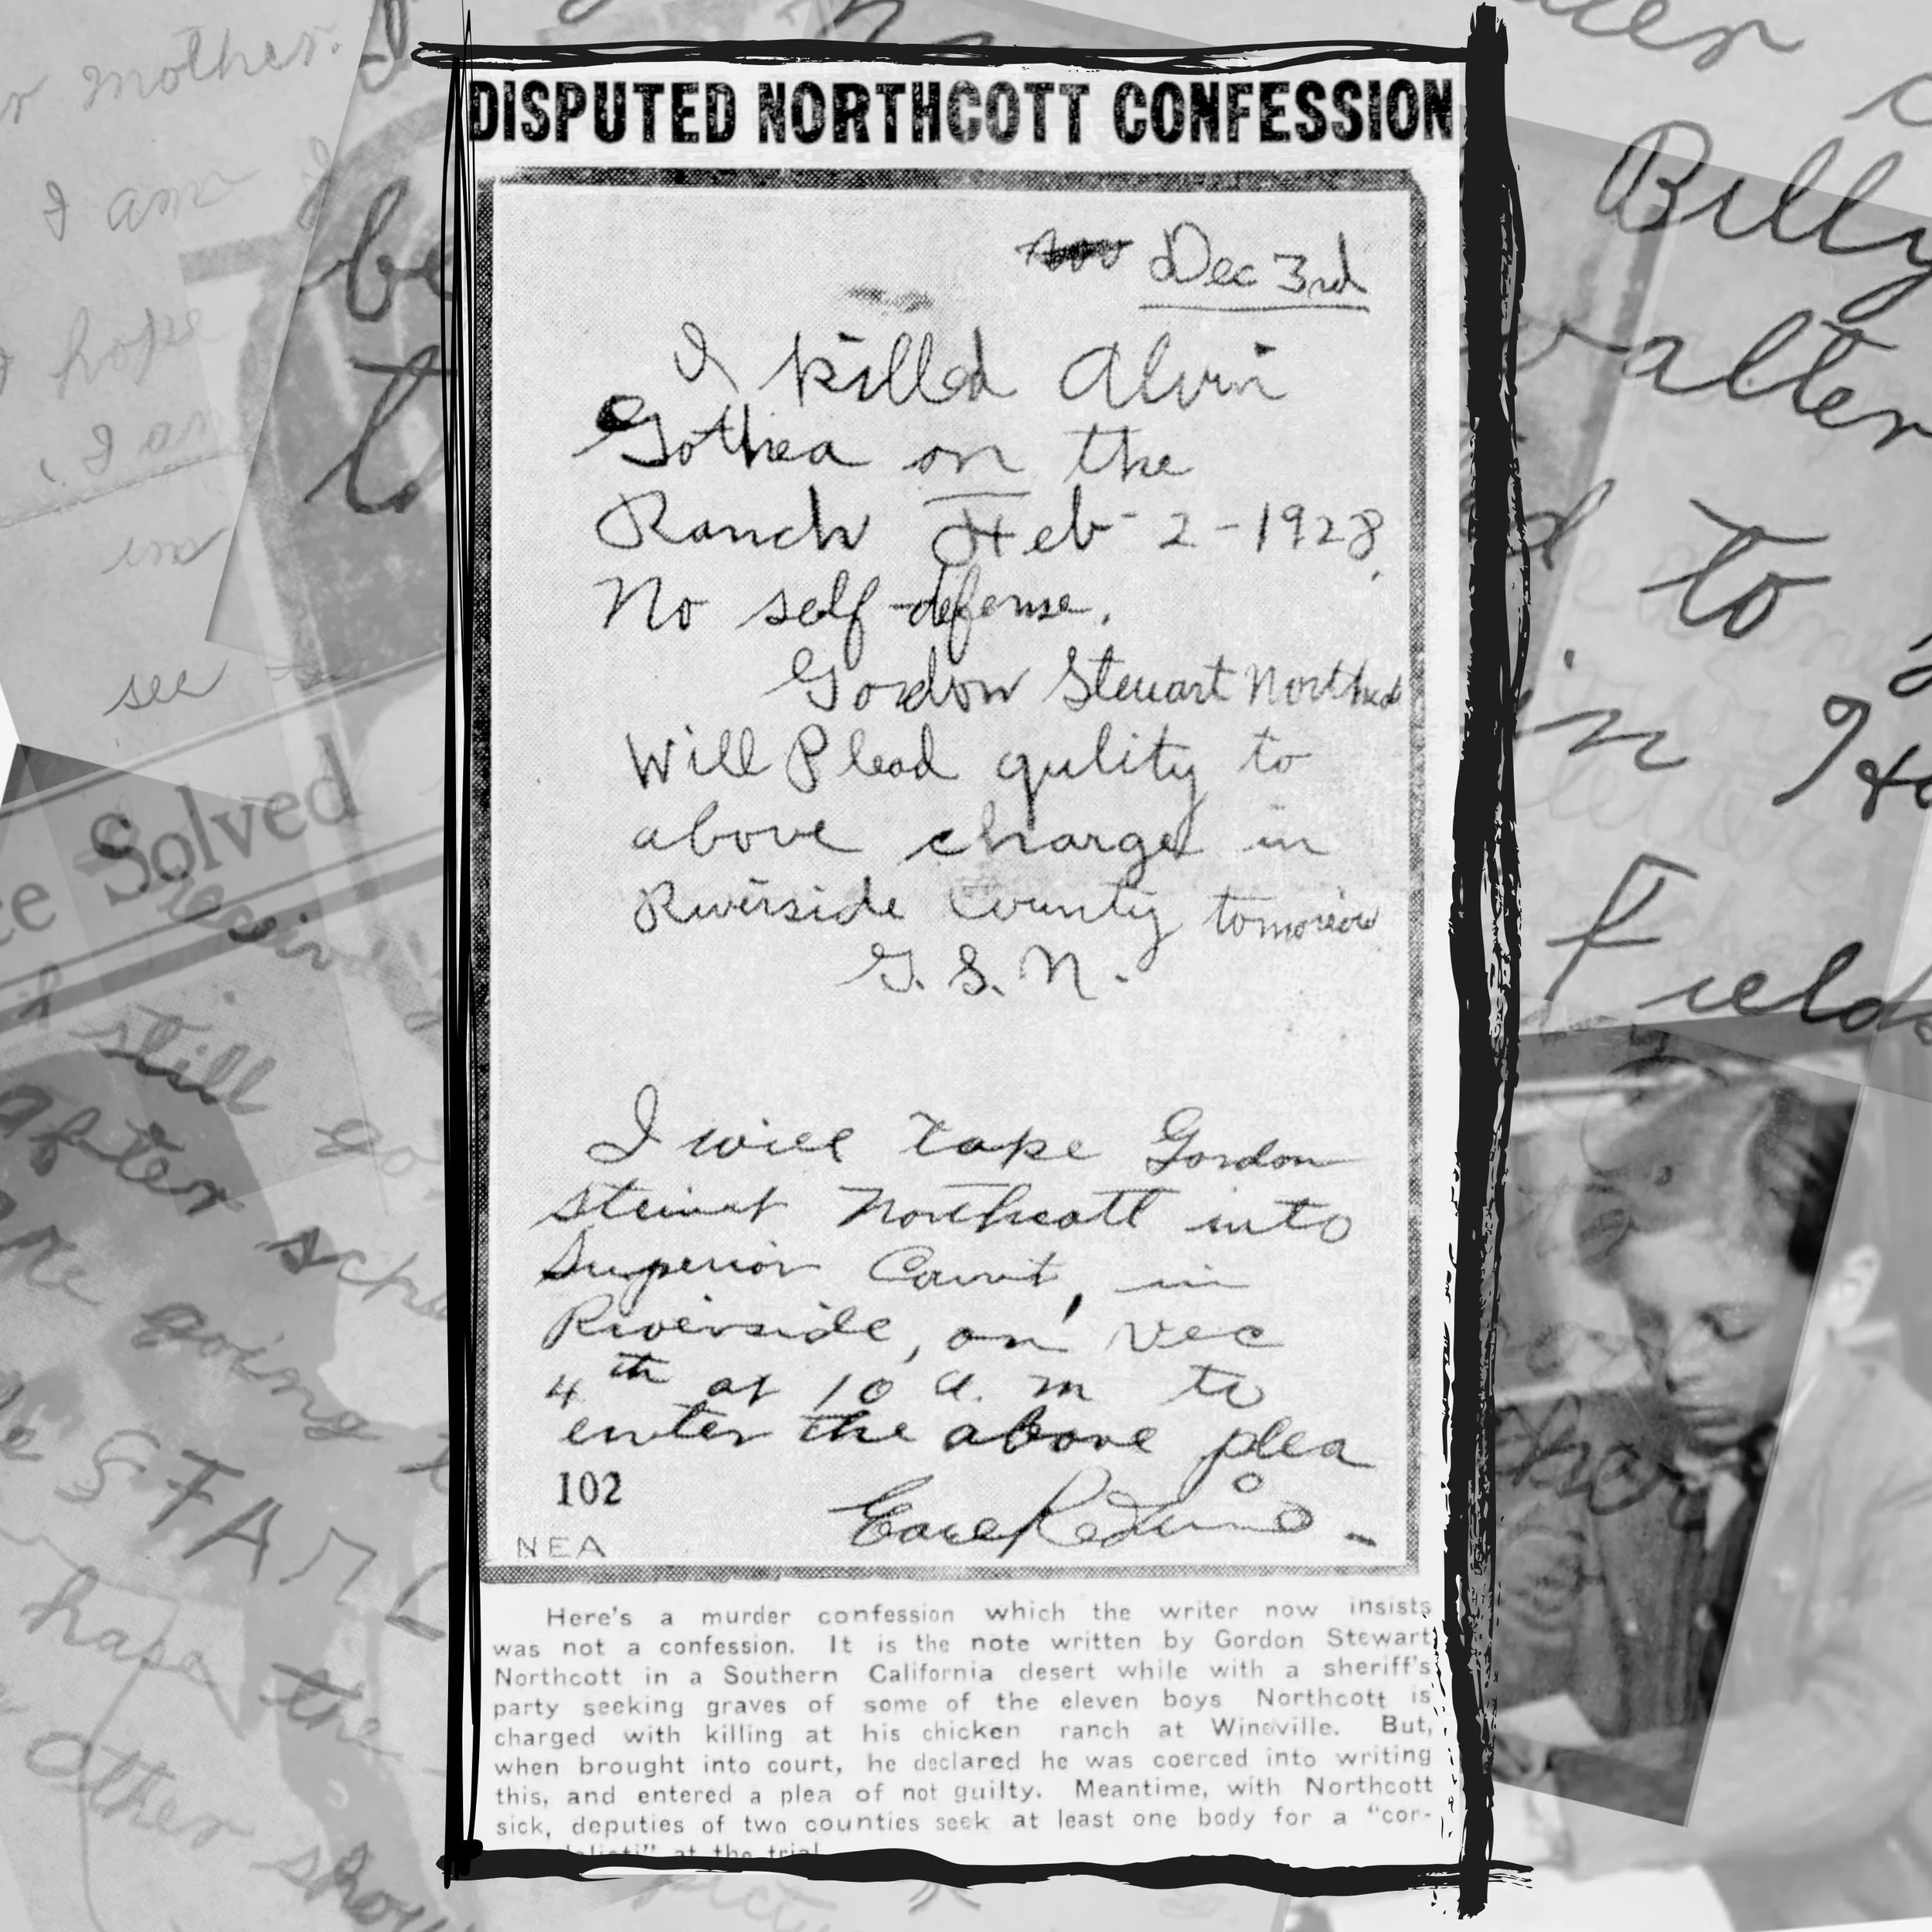 DISPUTED NORTHCOTT CONFESSION
Dec 3rd
I killed Alvin
Gothea on the
Ranch Feb-2-1928.
No self-defense.
Gordon Stewart Northcott
Will Plead guility to
above charge in
Riverside County tomorrow
G. S. N.
I will take Gordon
Stewart Northcott into
Superior Court, in
Riverside, on Dec
4th at 10 a.m to
enter the above plea
102
NEA
Here's a murder confession which the writer now insists
was not a confession. It is the note written by Gordon Stewart
Northcott in a Southern California desert while with a sheriff's
party seeking graves of some of the eleven boys Northcott is
charged with killing at his chicken ranch at Wineville. But,
when brought into court, he declared he was coerced into writing
this, and entered a plea of not guilty. Meantime, with Northcott
sick, deputies of two counties seek at least one body for a "cor-
at the trial
mother.
I am
hope
I am
see
Solved
still go
after sch
are going t
hapa
the
other show
be
Billy
Walter
to
in
Fields